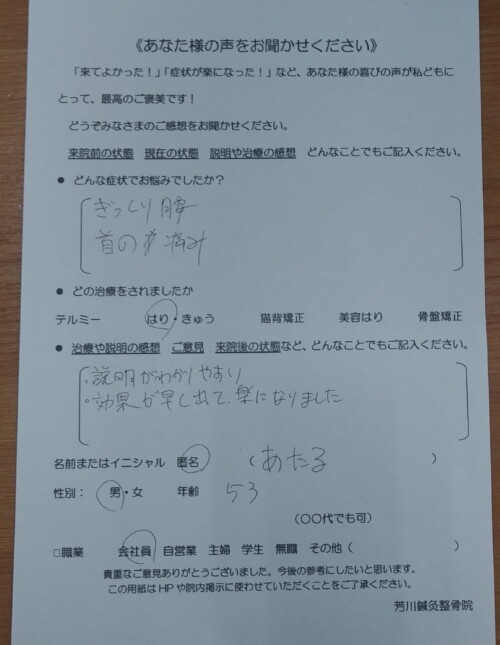 《あなた様の声をお聞かせください》
「来てよかった！」「症状が楽になった！」など、あなた様の喜びの声が私どもに
とって、最高のご褒美です！
どうぞみなさまのご感想をお聞かせください。
来院前の状態　現在の状態　説明や治療の感想　どんなことでもご記入ください。
● どんな症状でお悩みでしたか？
ぎっくり腰
首の痛み
● どの治療をされましたか
テルミー　はり・きゅう　猫背矯正　美容はり　骨盤矯正
● 治療や説明の感想　ご意見　来院後の状態など、どんなことでもご記入ください。
・説明がわかりやすい
・効果が早く出て、楽になりました
名前またはイニシャル　匿名　（あたる　）
性別：　男・女　年齢　53
（〇〇代でも可）
□職業　会社員　自営業　主婦　学生　無職　その他（　）
貴重なご意見ありがとうございました。今後の参考にしたいと思います。
この用紙はHPや院内掲示に使わせていただくことをご了承ください。
芳川鍼灸整骨院